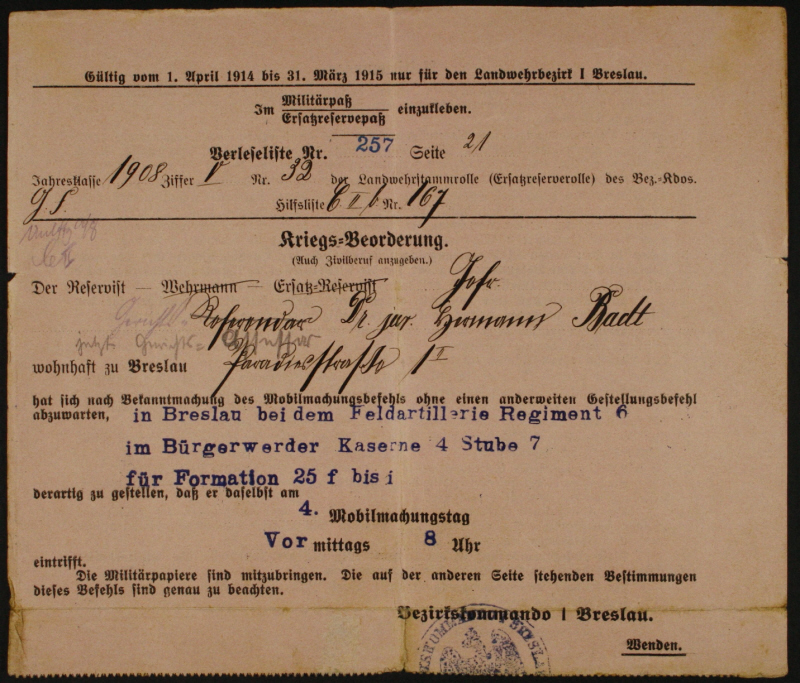 Gültig vom 1. April 1914 bis 31. März 1915 nur für den Landwehrbezirk I Breslau.
Im Militärpaß einzukleben.
Ersatzreservepaß
Verleseliste Nr. 257 Seite 21
Jahresklasse 1908 Ziffer V Nr. 32 der Landwehrstammrolle (Ersatzreserverolle) des Bez.-Kdos.
Hilfsliste C II b Nr. 167
Kriegs-Beorderung.
(Auch Zivilberuf anzugeben.)
Der Reservist — Wehrmann — Ersatz-Reservist Gefr.
Referendar Dr. jur. Hermann Badt
jetzt Gerichts-Assessor
wohnhaft zu Breslau Paradiesstrasse 1 II
hat sich nach Bekanntmachung des Mobilmachungsbefehls ohne einen anderweiten Gestellungsbefehl
abzuwarten, in Breslau bei dem Feldartillerie Regiment 6
im Bürgerwerder Kaserne 4 Stube 7
für Formation 25 f bis i
derartig zu gestellen, daß er daselbst am
4. Mobilmachungstag
Vor mittags 8 Uhr
eintrifft.
Die Militärpapiere sind mitzubringen. Die auf der anderen Seite stehenden Bestimmungen
dieses Befehls sind genau zu beachten.
Bezirkskommando I Breslau.
Wenden.